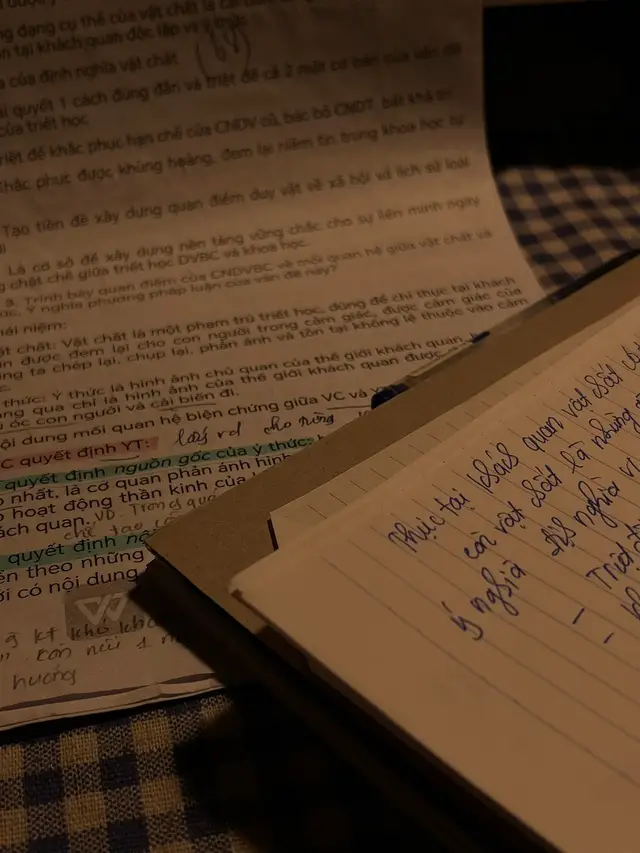 ng dạng cụ thể của vật chất là
n tại khách quan độc lập vs ý thức
a của định nghĩa vật chất (68)
ải quyết 1 cách đúng đắn và triệt để cả 2 mặt cơ bản của vấn đề
của triết học
riệt để khắc phục hạn chế của CNDV cũ, bác bỏ CNDT, bất khả tri
Khắc phục được khủng hoảng, đem lại niềm tin trong khoa học tự
Tạo tiền đề xây dựng quan điểm duy vật về xã hội và lịch sử loài
Là cơ sở để xây dựng nền tảng vững chắc cho sự liên minh ngày
g chặt chẽ giữa triết học DVBC và khoa học.
3. Trình bày quan điểm của CNDVBC về mối quan hệ giữa vật chất và
ức. Ý nghĩa phương pháp luận của vấn đề này?
hái niệm:
ật chất: Vật chất là một phạm trù triết học, dùng để chỉ thực tại khách
an được đem lại cho con người trong cảm giác, được cảm giác của
úng ta chép lại, chụp lại, phản ánh và tồn tại không lệ thuộc vào cảm
c.
thức: Ý thức là hình ảnh chủ quan của thế giới khách quan,
ng qua chỉ là hình ảnh của thế giới khách quan được
óc con người và cải biến đi.
ội dung mối quan hệ biện chứng giữa VC và
C quyết định YT: lấy vd cho từng
quyết định nguồn gốc của ý thức:
nhất, là cơ quan phản ánh hình
hoạt động thần kinh của
ách quan. VD. Trong quá
chế tạo
quyết định nộ
ến theo những
ới có nội dung
kt khó kh
con nói 1
hướng
Thực tại khác quan vật chất
còn vật chất là những
ý nghĩa định nghĩa
- Triệt
-